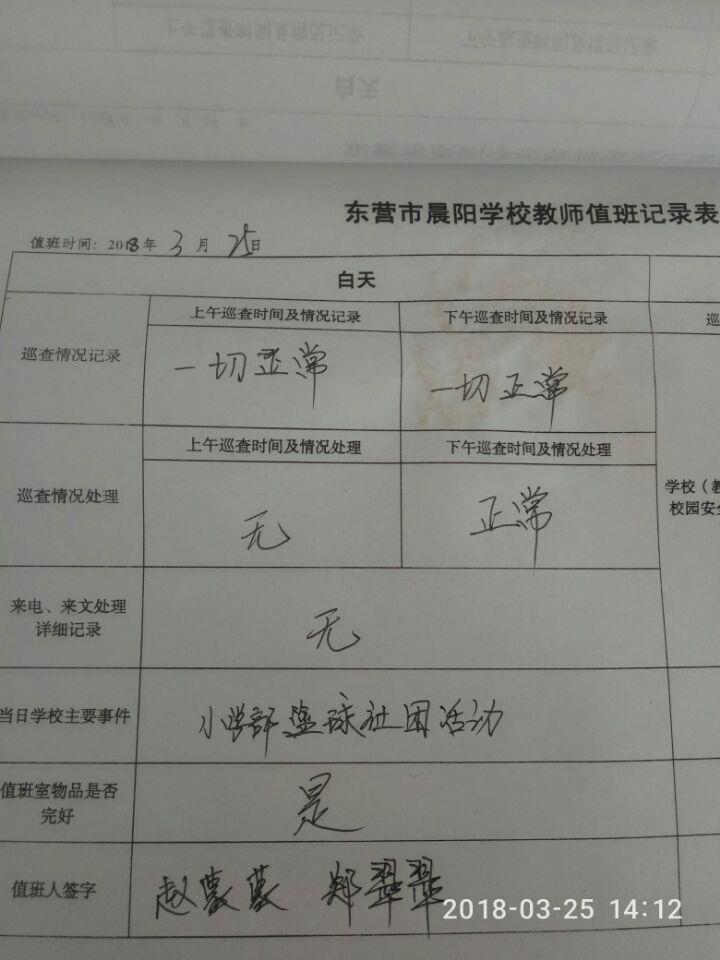 上午巡查时间及情况记录 下午巡查时间及情况记录
白天
东营市晨阳学校教师值班记录表
值班时间：2018年3月25日
白天
巡查情况记录
上午巡查时间及情况记录 下午巡查时间及情况记录 巡
一切正常 一切正常
巡查情况处理
上午巡查时间及情况处理 下午巡查时间及情况处理
无 正常
学校（教
校园安全
来电、来文处理
详细记录
无
当日学校主要事件
小学部篮球社团活动
值班室物品是否
完好
是
值班人签字
赵 郑翠翠
2018-03-25 14:12